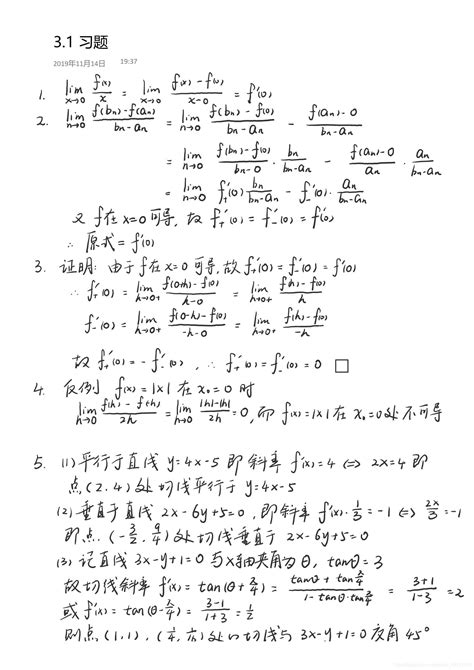 3.1 习题
2019年11月14日 19:37
1. lim_{x→0} f(x)/x = lim_{x→0} (f(x)-f(0))/(x-0) = f'(0)
2. lim_{n→0} (f(bn)-f(an))/(bn-an) = lim_{n→0} (f(bn)-f(0))/(bn-an) - (f(an)-0)/(bn-an)
= lim_{n→0} (f(bn)-f(0))/(bn-0) · bn/(bn-an) - (f(an)-0)/an · an/(bn-an)
= lim_{n→0} f'₊(0) bn/(bn-an) - f'₋(0) · an/(bn-an)
又 f在x=0可导, 故 f'₊(0) = f'₋(0) = f'(0)
∴ 原式 = f'(0)
3. 证明: 由于f在x=0可导,故f'₊(0)=f'₋(0)=f'(0)
∴ f'₊(0) = lim_{h→0+} (f(0+h)-f(0))/(h-0) = lim_{h→0+} (f(h)-f(0))/h
f'₋(0) = lim_{h→0+} (f(0-h)-f(0))/(-h-0) = lim_{h→0+} (f(h)-f(0))/(-h)
故 f'₊(0) = -f'₋(0), ∴ f'₊(0) = f'₋(0) = 0 □
4. 反例 f(x)=|x| 在 x₀=0 时
lim_{h→0} (f(h)-f(-h))/2h = lim_{h→0} (|h|-|h|)/2h = 0, 而 f(x)=|x| 在 x₀=0处不可导
5. (1) 平行于直线 y=4x-5 即 斜率 f'(x)=4 ⇔ 2x=4 即
点(2,4)处切线平行于 y=4x-5
(2) 垂直于直线 2x-6y+5=0, 即斜率 f'(x)·1/3 = -1 ⇔ 2x/3 = -1
即点 (-3/2, 9/4) 处切线垂直于 2x-6y+5=0
(3) 记直线 3x-y+1=0 与x轴夹角为θ, tanθ=3
故切线斜率 f'(x) = tan(θ+π/4) = (tanθ+tanπ/4)/(1-tanθ·tanπ/4) = (3+1)/(1-3) = 2
或 f'(x) = tan(θ-π/4) = (3-1)/(1+3) = 1/2
则点(1,1), (1/4, 1/16)处切线与 3x-y+1=0 夹角 45°